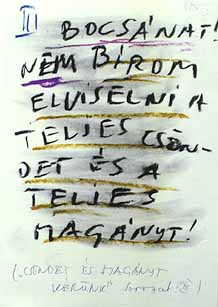 II BOCSÁNAT!
NEM BÍROM
ELVISELNI A
TELJES CSÖN-
DET ÉS A
TELJES
MAGÁNYT!
("CSÖNDET ÉS MAGÁNYT
KÉRÜNK"